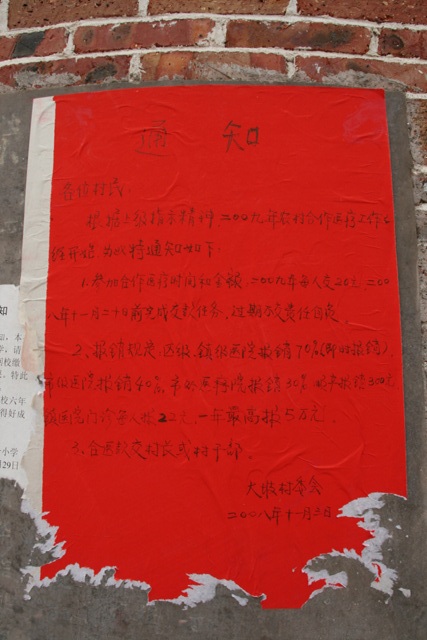 通知
各位村民:
根据上级指示精神,二00九年农村合作医疗工作已
经开始,为此特通知如下:
1、参加合作医疗时间和金额,二00九年每人交20元,二00
八年十一月二十日前完成交款任务,过期不交责任自负。
2、报销规定,区级、镇级医院报销70%(即时报销)
市级医院报销40%,市外医院报销30%,顺产报销300元
镇医院门诊每人报22元,一年最高报5万元。
3、合医款交村长或村干部。
大墩村委会
二00八年十一月三日
知
校六年
得好成
小学
月29日